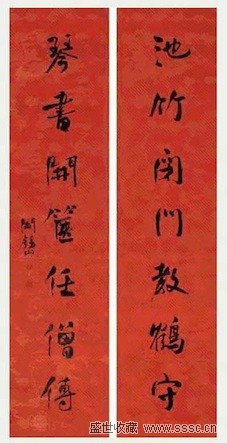 池竹閉門教鶴守
琴書開篋任僧傳
閻錫山
盛世收藏
www.sssc.cn